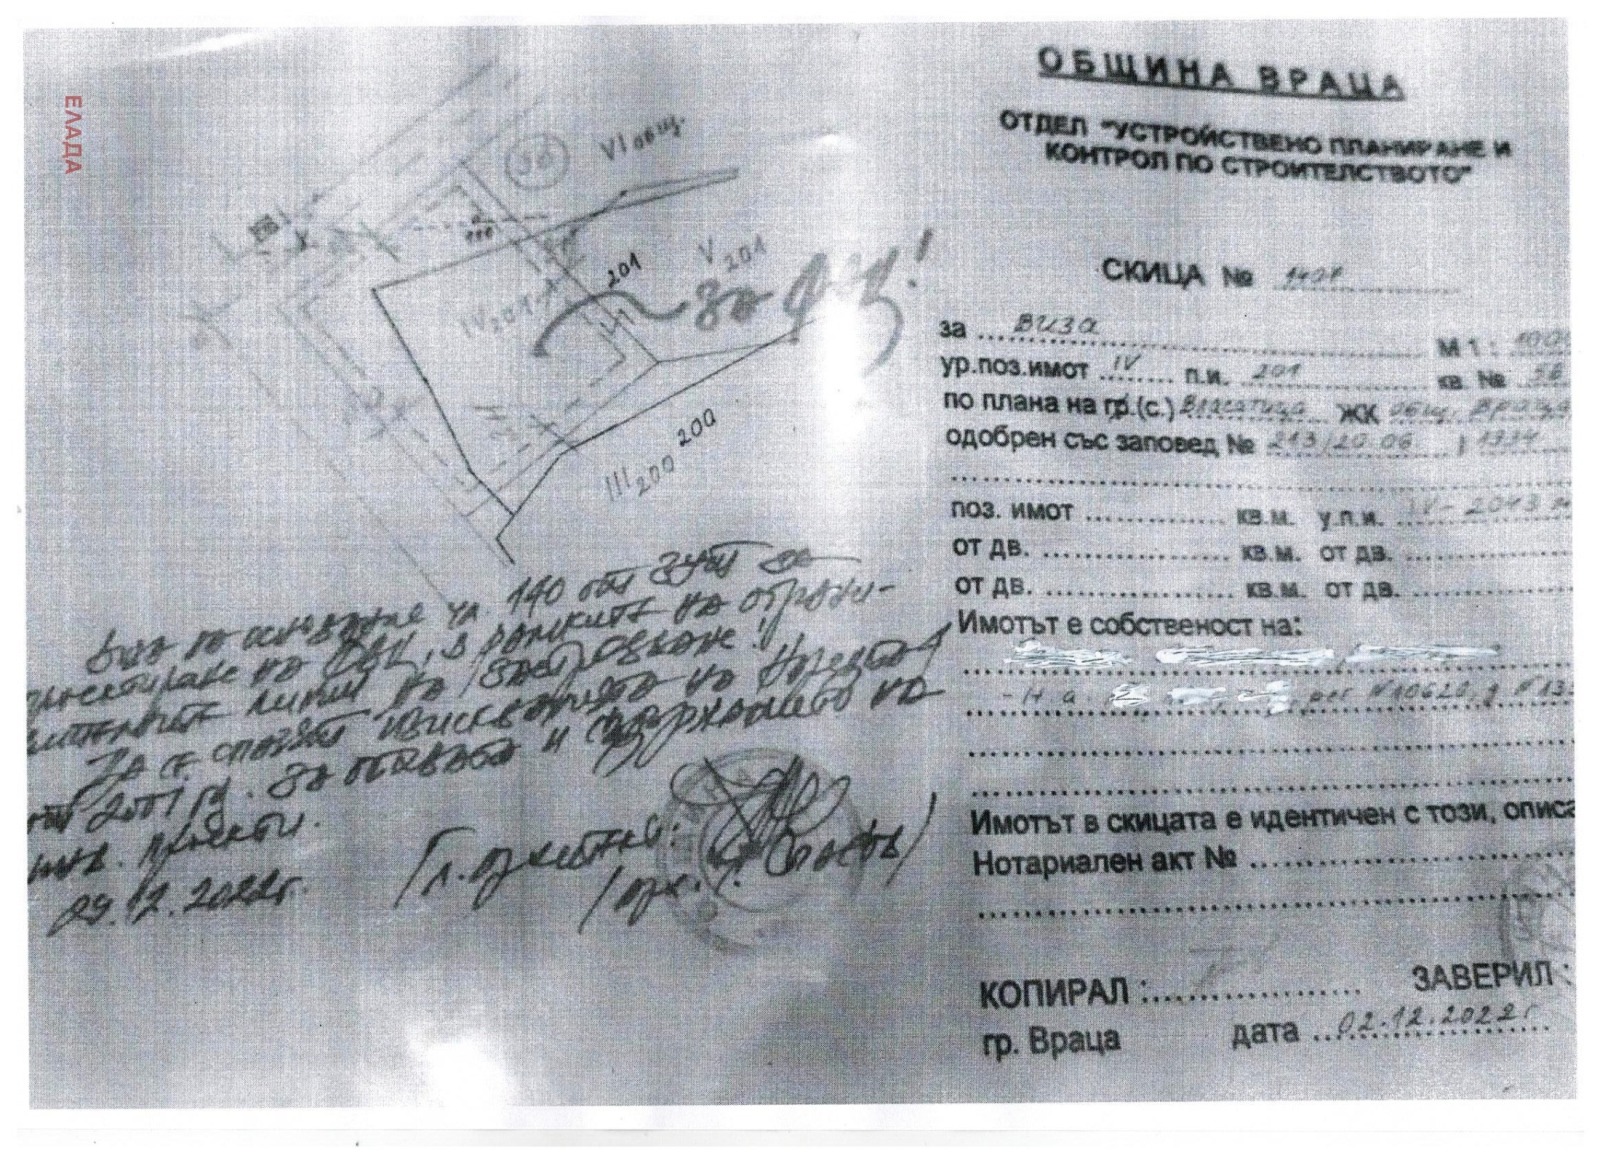 ЕЛАДА
36
VI общ.
201
V 201
IV 201
За ФЕЦ!
III 200
200
Виза на основание чл. 140 от ЗУТ за
проектиране на ФЕЦ, в рамките на ограничи-
телните линии на застрояване!
Да се спазят изискванията на Наредба
от 2001 г. за обхвата и съдържанието на
инв. проекти.
29.12.2022г.
Гл. архитект:
/арх.
ОБЩИНА ВРАЦА
ОТДЕЛ "УСТРОЙСТВЕНО ПЛАНИРАНЕ И
КОНТРОЛ ПО СТРОИТЕЛСТВОТО"
СКИЦА № 1407
за виза М 1 : 1000
ур.поз.имот IV п.и. 201 кв. № 36
по плана на гр.(с.) Власатица ЖК общ. Враца
одобрен със заповед № 213/20.06. 1994
поз. имот кв.м. у.п.и. IV - 2013
от дв. кв.м. от дв.
от дв. кв.м. от дв.
Имотът е собственост на:
- Н а рег. №10620, д №13
Имотът в скицата е идентичен с този, описа
Нотариален акт №
КОПИРАЛ : ЗАВЕРИЛ :
гр. Враца дата 02.12.2022г